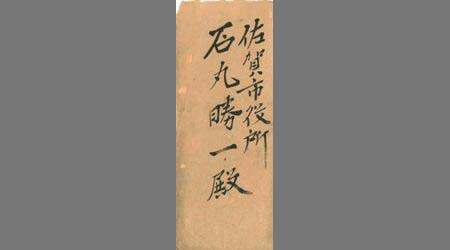 佐賀市役所
石丸勝一殿